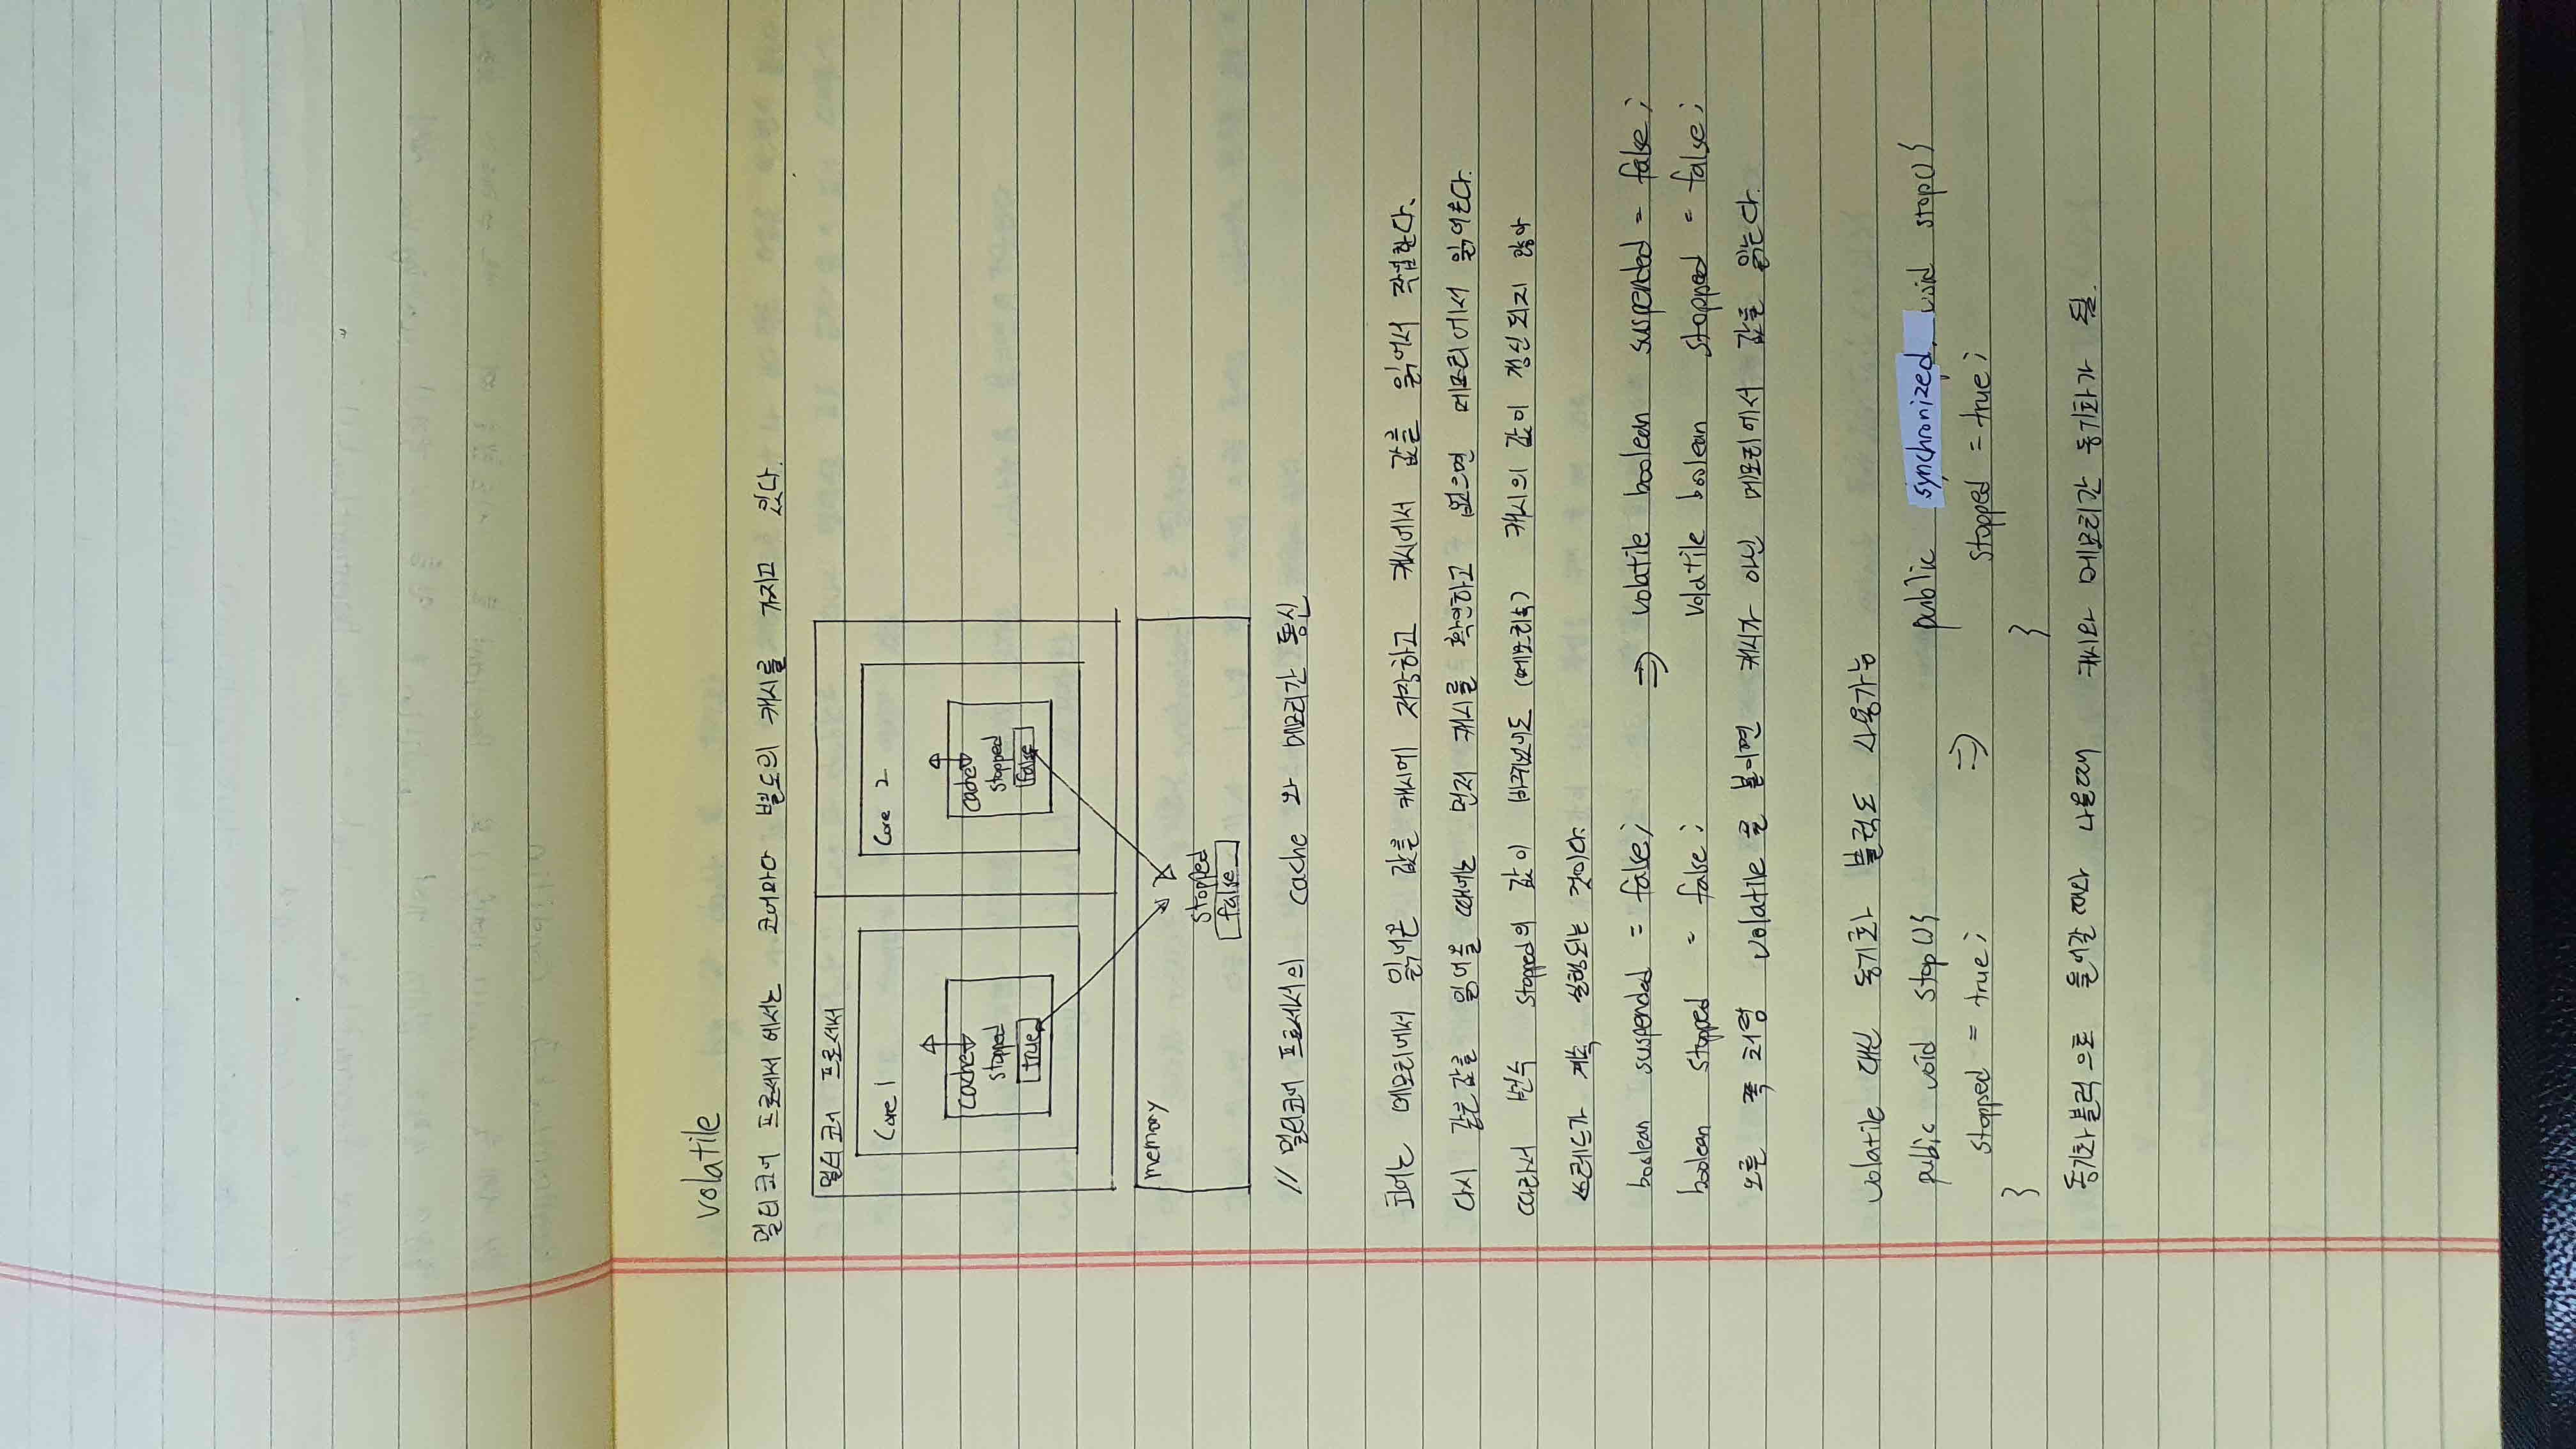 volatile
멀티코어 프로세서 에서는 코어마다 별도의 캐시를 가지고 있다.
멀티 코어 프로세서
Core 1
Core 2
cache
stopped
true
cache
stopped
false
memory
stopped
false
// 멀티코어 프로세서의 cache 와 메모리간 통신
코어는 메모리에서 읽어온 값을 캐시에 저장하고 캐시에서 값을 읽어서 작업한다.
다시 같은값을 읽어올 때에는 먼저 캐시를 확인하고 없으면 메모리에서 읽어온다.
따라서 변수 stopped의 값이 바뀌었어도 (메모리속) 캐시의 값이 갱신되지 않아
쓰레드가 계속 실행되는 것이다.
boolean suspended = false; ⇒ volatile boolean suspended = false;
boolean stopped = false; volatile boolean stopped = false;
오른 쪽 처럼 volatile 을 붙이면 캐시가 아닌 메모리에서 값을 읽는다.
volatile 대신 동기화 블럭도 사용가능
public void stop(){ public synchronized void stop(){
stopped = true; ⇒ stopped = true;
} }
동기화블럭으로 들어갈 때와 나올때 캐시와 메모리간 동기화가 됨.